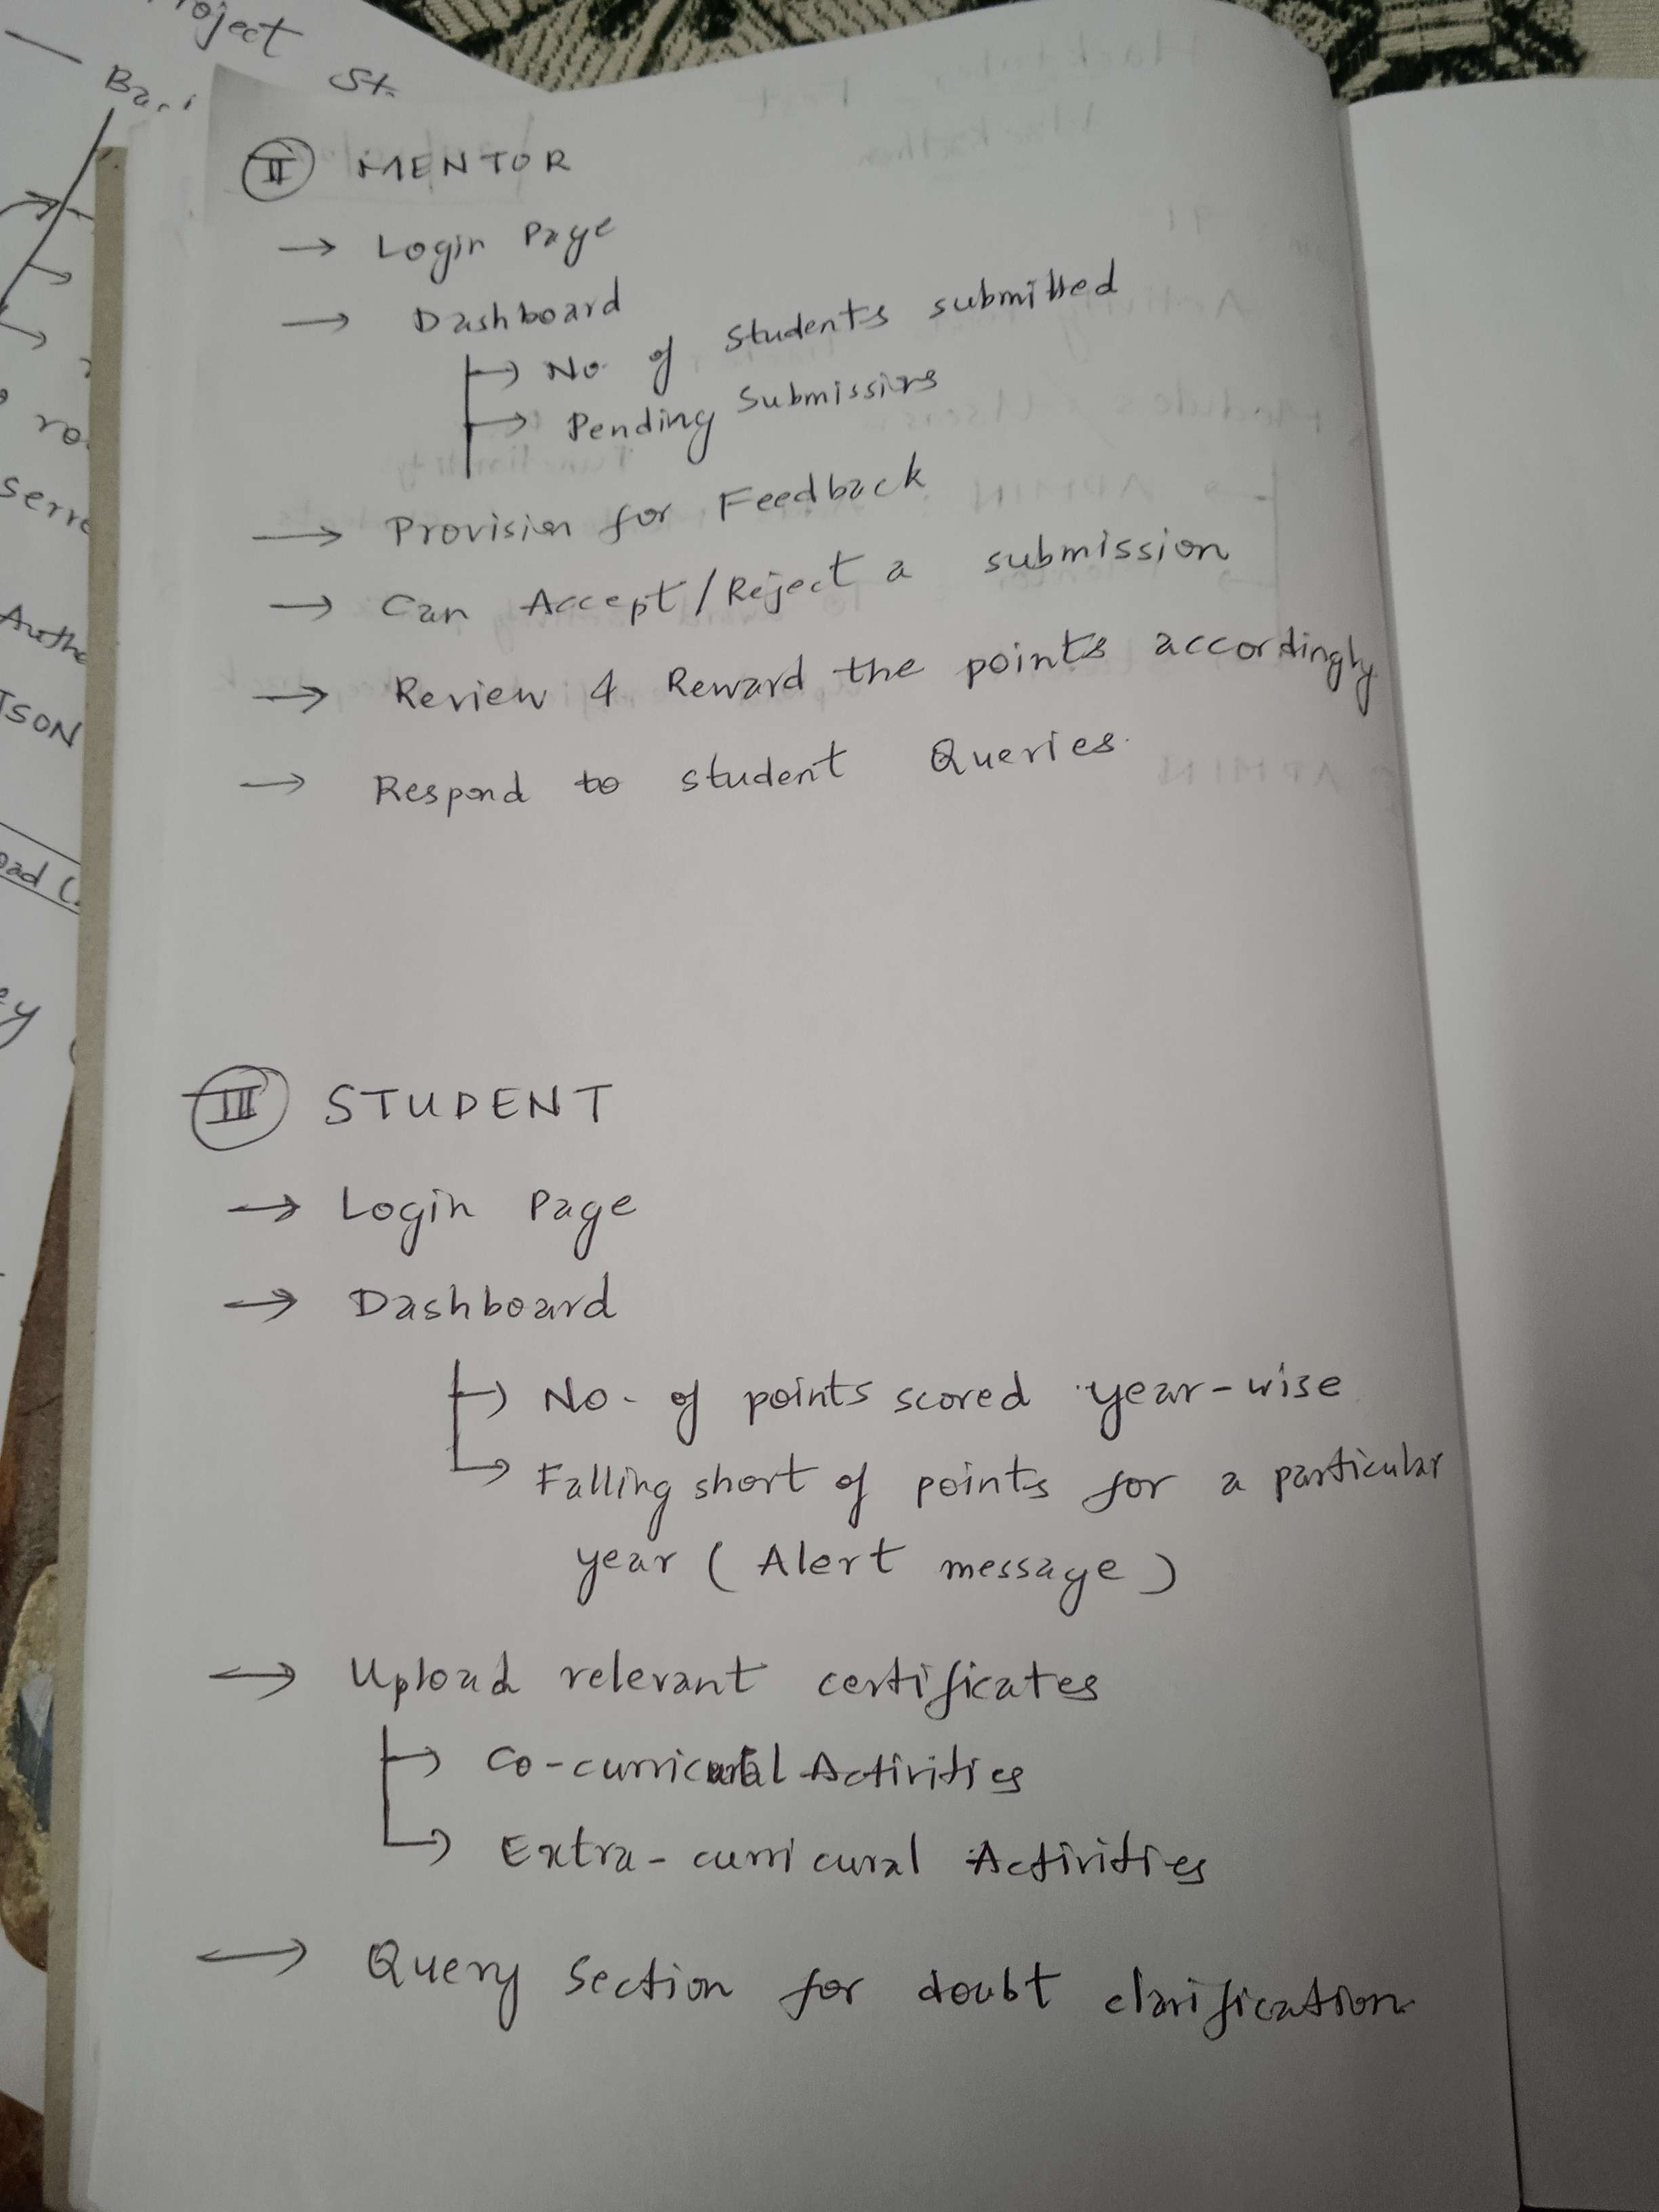 roject
St.
II MENTOR
→ Login Page
→ Dashboard
→ No. of students submitted
→ Pending Submissions
→ Provision for Feedback
→ Can Accept/Reject a submission
→ Review & Reward the points accordingly
→ Respond to student Queries.
III STUDENT
→ Login Page
→ Dashboard
→ No. of points scored year-wise
→ Falling short of points for a particular
year (Alert message)
→ Upload relevant certificates
→ Co-curricural Activities
→ Extra-curricural Activities
→ Query Section for doubt clarification
ro
serve
Authe
JSON
oad
ey